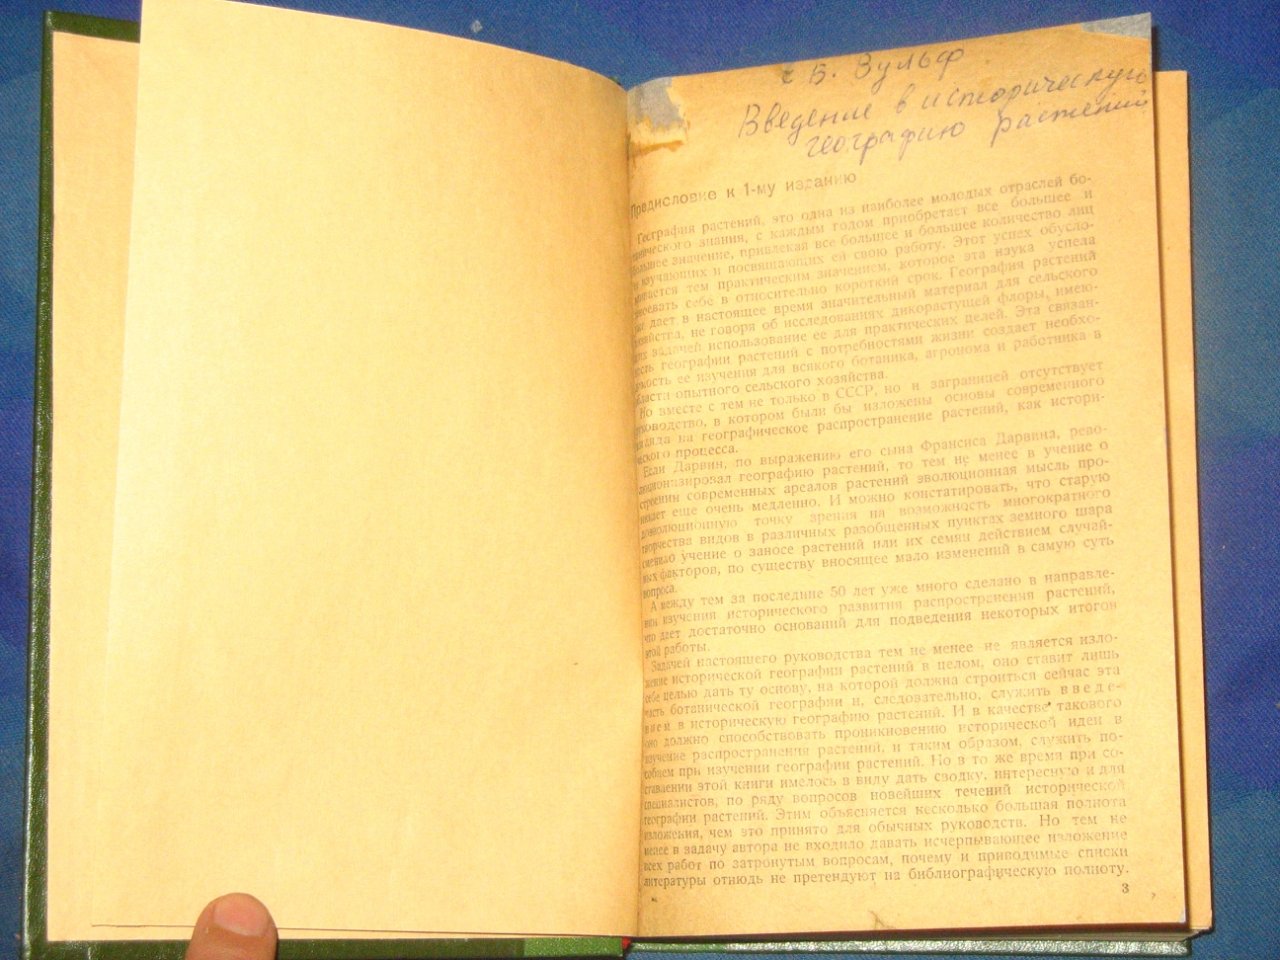 Е В. Вульф
Введение в историческую
географию растений
Предисловие к 1-му изданию
География растений, это одна из наиболее молодых отраслей бо-
танического знания, с каждым годом приобретает все большее и
большее значение, привлекая все большее и большее количество лиц
и изучающих и посвящающих ей свою работу. Этот успех обусло-
вливается тем практическим значением, которое эта наука успела
завоевать себе в относительно короткий срок. География растений
уже дает в настоящее время значительный материал для сельского
хозяйства, не говоря об исследованиях дикорастущей флоры, имею-
щих задачей использование ее для практических целей. Эта связан-
ность географии растений с потребностями жизни создает необхо-
димость ее изучения для всякого ботаника, агронома и работника в
области опытного сельского хозяйства.
Но вместе с тем не только в СССР, но и заграницей отсутствует
руководство, в котором были бы изложены основы современного
взгляда на географическое распространение растений, как истори-
ческого процесса.
Если Дарвин, по выражению его сына Франсиса Дарвина, рево-
люционизировал географию растений, то тем не менее в учение о
строении современных ареалов растений эволюционная мысль про-
никает еще очень медленно. И можно констатировать, что старую
доэволюционную точку зрения на возможность многократного
творчества видов в различных разобщенных пунктах земного шара
сменило учение о заносе растений или их семян действием случай-
ных факторов, по существу вносящее мало изменений в самую суть
вопроса.
А между тем за последние 50 лет уже много сделано в направле-
нии изучения исторического развития распространения растений,
что дает достаточно оснований для подведения некоторых итогов
этой работы.
Задачей настоящего руководства тем не менее не является изло-
жение исторической географии растений в целом, оно ставит лишь
себе целью дать ту основу, на которой должна строиться сейчас эта
часть ботанической географии и, следовательно, служить введе-
нием в историческую географию растений. И в качестве такового
оно должно способствовать проникновению исторической идеи в
изучение распространения растений, и таким образом, служить по-
собием при изучении географии растений. Но в то же время при со-
ставлении этой книги имелось в виду дать сводку, интересную и для
специалистов, по ряду вопросов новейших течений исторической
географии растений. Этим объясняется несколько большая полнота
изложения, чем это принято для обычных руководств. Но тем не
менее в задачу автора не входило давать исчерпывающее изложение
всех работ по затронутым вопросам, почему и приводимые списки
литературы отнюдь не претендуют на библиографическую полноту.
3